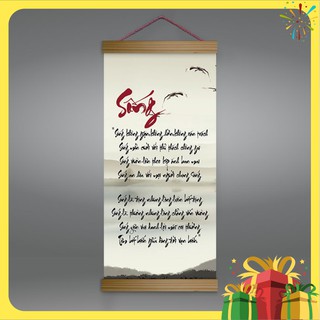 Sống
"Sống không giận không hờn không oán trách
Sống mỉm cười với thử thách chông gai
Sống vươn lên theo kịp ánh ban mai
Sống an hòa với mọi người chung sống
Sống là động nhưng lòng luôn bất động
Sống là thương nhưng lòng chẳng vấn vương
Sống yên vui danh lợi mãi coi thường
Tâm bất biến giữa dòng đời vạn biến